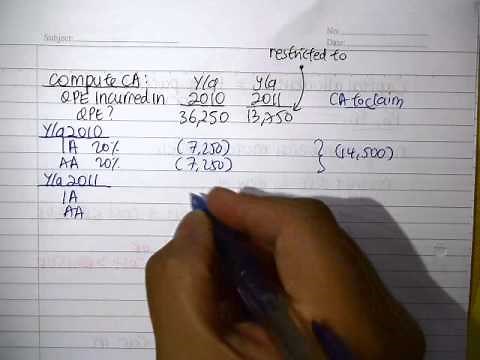 Subject:
No:
Date:
restricted to
Compute CA: Y/a Y/a
QPE incurred in 2010 2011 CA to claim
QPE? 36,250 13,750
Y/a 2010
IA 20% (7,250)
AA 20% (7,250) } (14,500)
Y/a 2011
IA
AA